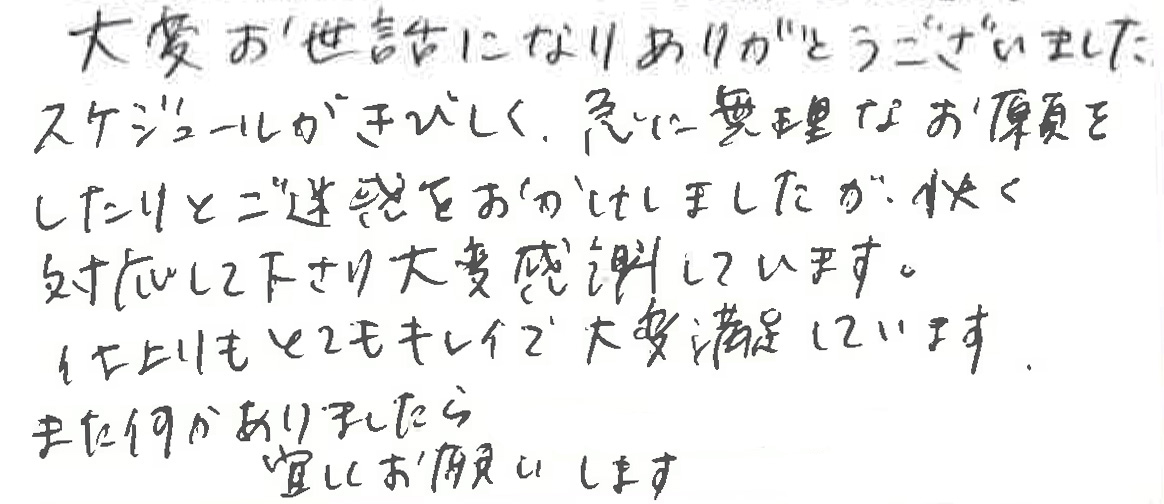 大変お世話になりありがとうございました
スケジュールがきびしく、急に無理なお願を
したりとご迷惑をおかけしましたが、快く
対応して下さり大変感謝しています。
仕上りもとてもキレイで大変満足しています.
また何かありましたら
宜しくお願いします